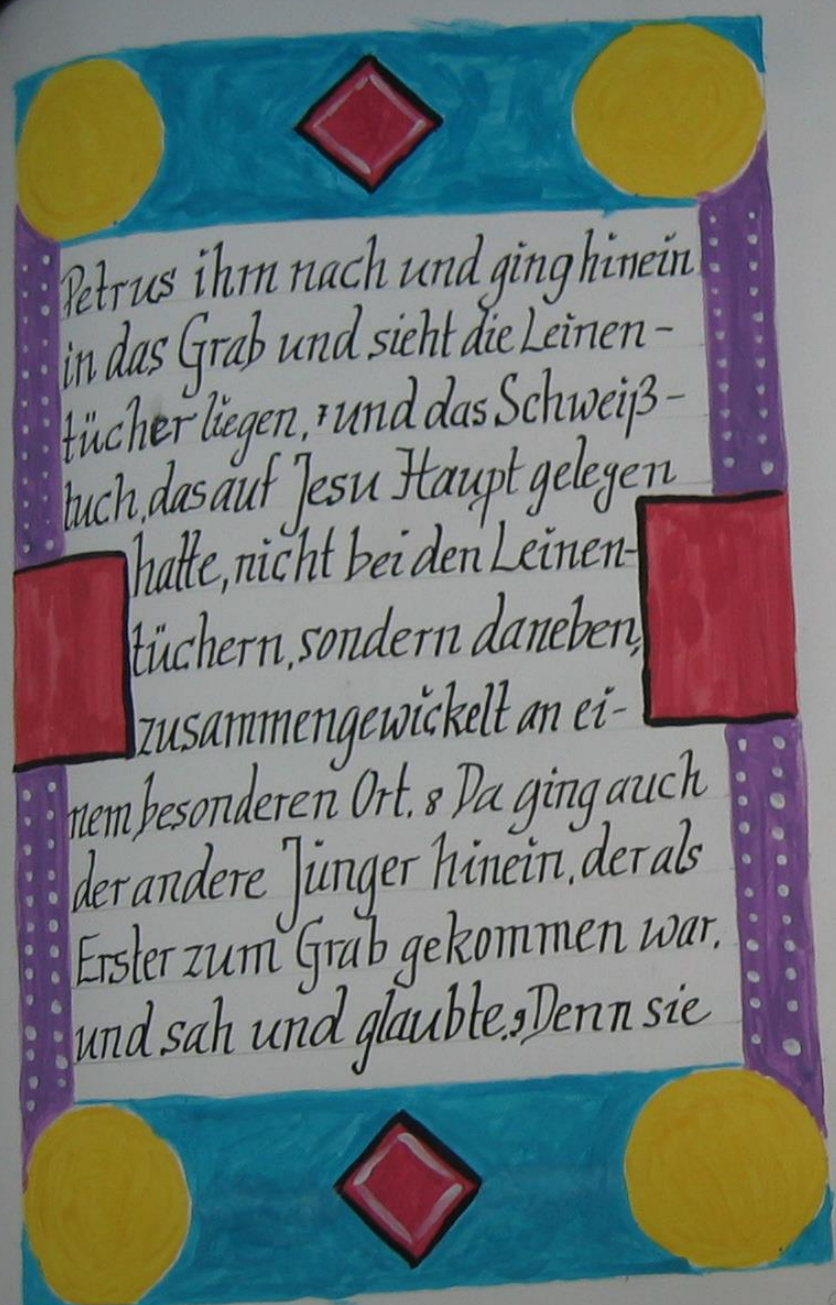 Petrus ihm nach und ging hinein
in das Grab und sieht die Leinen-
tücher liegen, 7 und das Schweiß-
tuch, das auf Jesu Haupt gelegen
hatte, nicht bei den Leinen-
tüchern, sondern daneben,
zusammengewickelt an ei-
nem besonderen Ort. 8 Da ging auch
der andere Jünger hinein, der als
Erster zum Grab gekommen war,
und sah und glaubte. 9 Denn sie